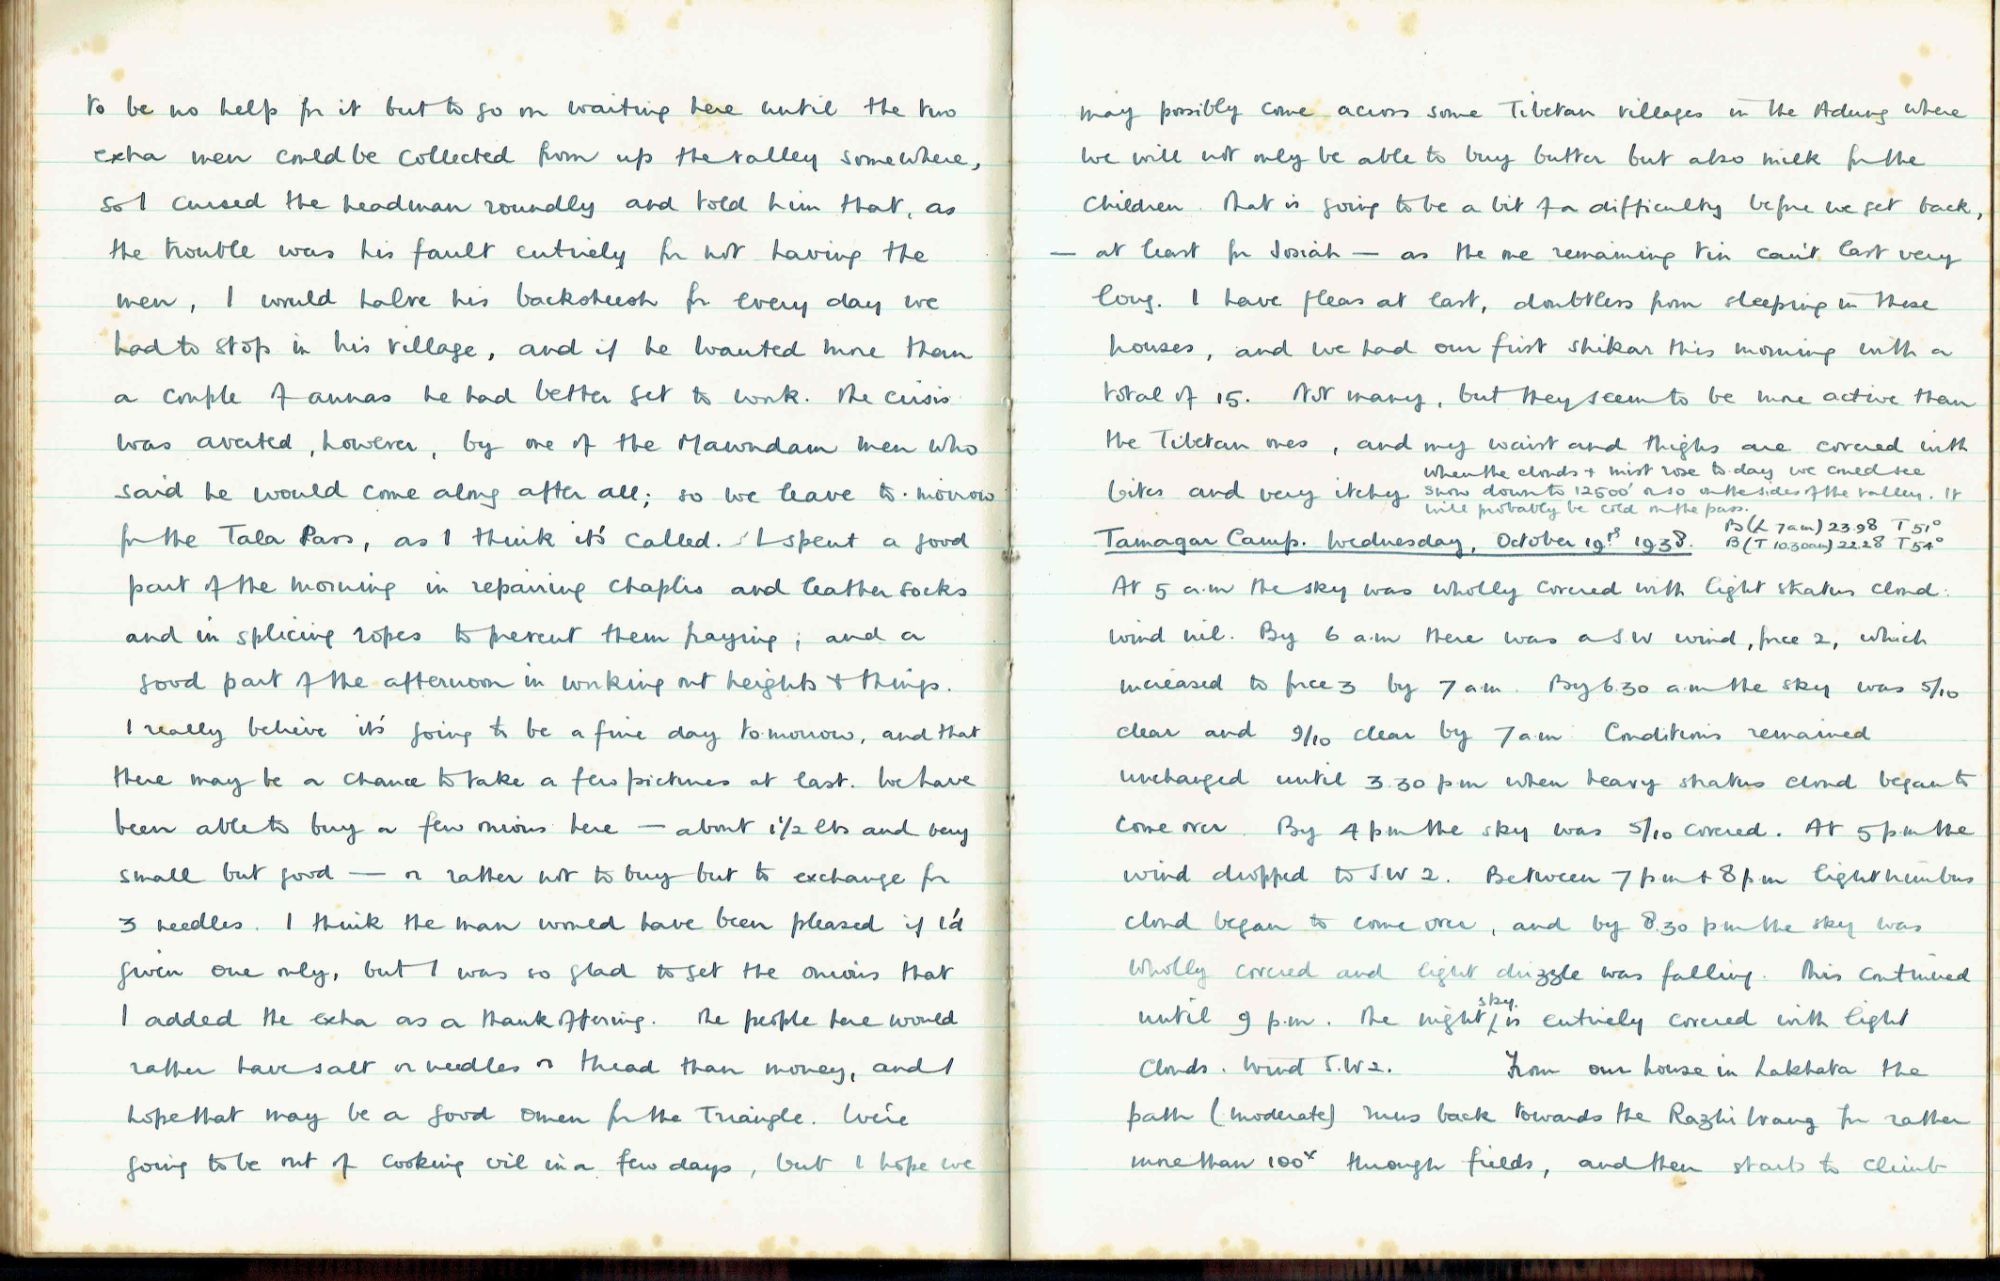 to be no help for it but to go on waiting here until the two
extra men could be collected from up the valley somewhere,
so I cursed the headman roundly and told him that, as
the trouble was his fault entirely for not having the
men, I would halve his backsheesh for every day we
had to stop in his village, and if he wanted more than
a couple of annas he had better get to work. The crisis
was averted, however, by one of the Mawndam men who
said he would come along after all; so we leave to-morrow
for the Tala Pass, as I think it's called. I spent a good
part of the morning in repairing chaplis and leather socks
and in splicing ropes to prevent them fraying; and a
good part of the afternoon in working out heights & things.
I really believe it's going to be a fine day tomorrow, and that
there may be a chance to take a few pictures at last. We have
been able to buy a few onions here — about 1½ lbs and very
small but good — or rather not to buy but to exchange for
3 needles. I think the man would have been pleased if I'd
given one only, but I was so glad to get the onions that
I added the extra as a thank offering. The people here would
rather have salt or needles or thread than money, and I
hope that may be a good omen for the Triangle. We're
going to be out of cooking oil in a few days, but I hope we
may possibly come across some Tibetan villages in the Adung where
we will not only be able to buy butter but also milk for the
children. That is going to be a bit of a difficulty before we get back,
— at least for Josiah — as the one remaining tin can't last very
long. I have fleas at last, doubtless from sleeping in these
houses, and we had our first shikar this morning with a
total of 15. Not many, but they seem to be more active than
the Tibetan ones, and my waist and thighs are covered with
bites and very itchy.
When the clouds & mist rose to-day we could see
snow down to 12500' or so on the sides of the valley. It
will probably be cold on the pass.
Tamagar Camp. Wednesday, October 19th 1938.
B (L 7am) 23.98 T 51°
B (T 10.30am) 22.28 T 54°
At 5 a.m the sky was wholly covered with light stratus cloud.
Wind nil. By 6 a.m there was a SW wind, force 2, which
increased to force 3 by 7 am. By 6.30 a.m the sky was 5/10
clear and 9/10 clear by 7 am. Conditions remained
unchanged until 3.30 pm when heavy stratus cloud began to
come over. By 4 pm the sky was 5/10 covered. At 5 pm the
wind dropped to SW 2. Between 7 pm & 8 pm light nimbus
cloud began to come over, and by 8.30 pm the sky was
wholly covered and light drizzle was falling. This continued
until 9 p.m. The night sky is entirely covered with light
clouds. Wind S.W 2. From our house in Lakhata the
path (moderate) runs back towards the Razhi Wang for rather
more than 100ˣ through fields, and then starts to climb